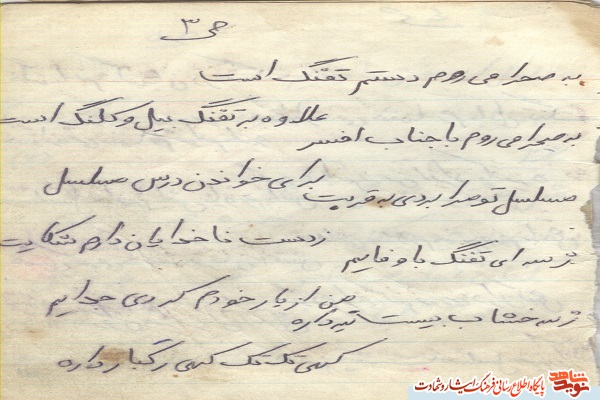 ص ۳
به صحرا می روم دستم تفنگ است
علاوه بر تفنگ بیل و کلنگ است
به صحرا می روم با جناب افسر
برای خواندن درس مسلسل
مسلسل تو مرا بردی به غربت
زدست ناخدایان دارم شکایت
ژ سه ای تفنگ با وفایم
من از یار خودم کردی جدایم
ژ سه خشاب بیست تیر داره
گهی تک تک گهی رگبار داره
نوید شاهد
پایگاه اطلاع رسانی فرهنگ ایثار و شهادت